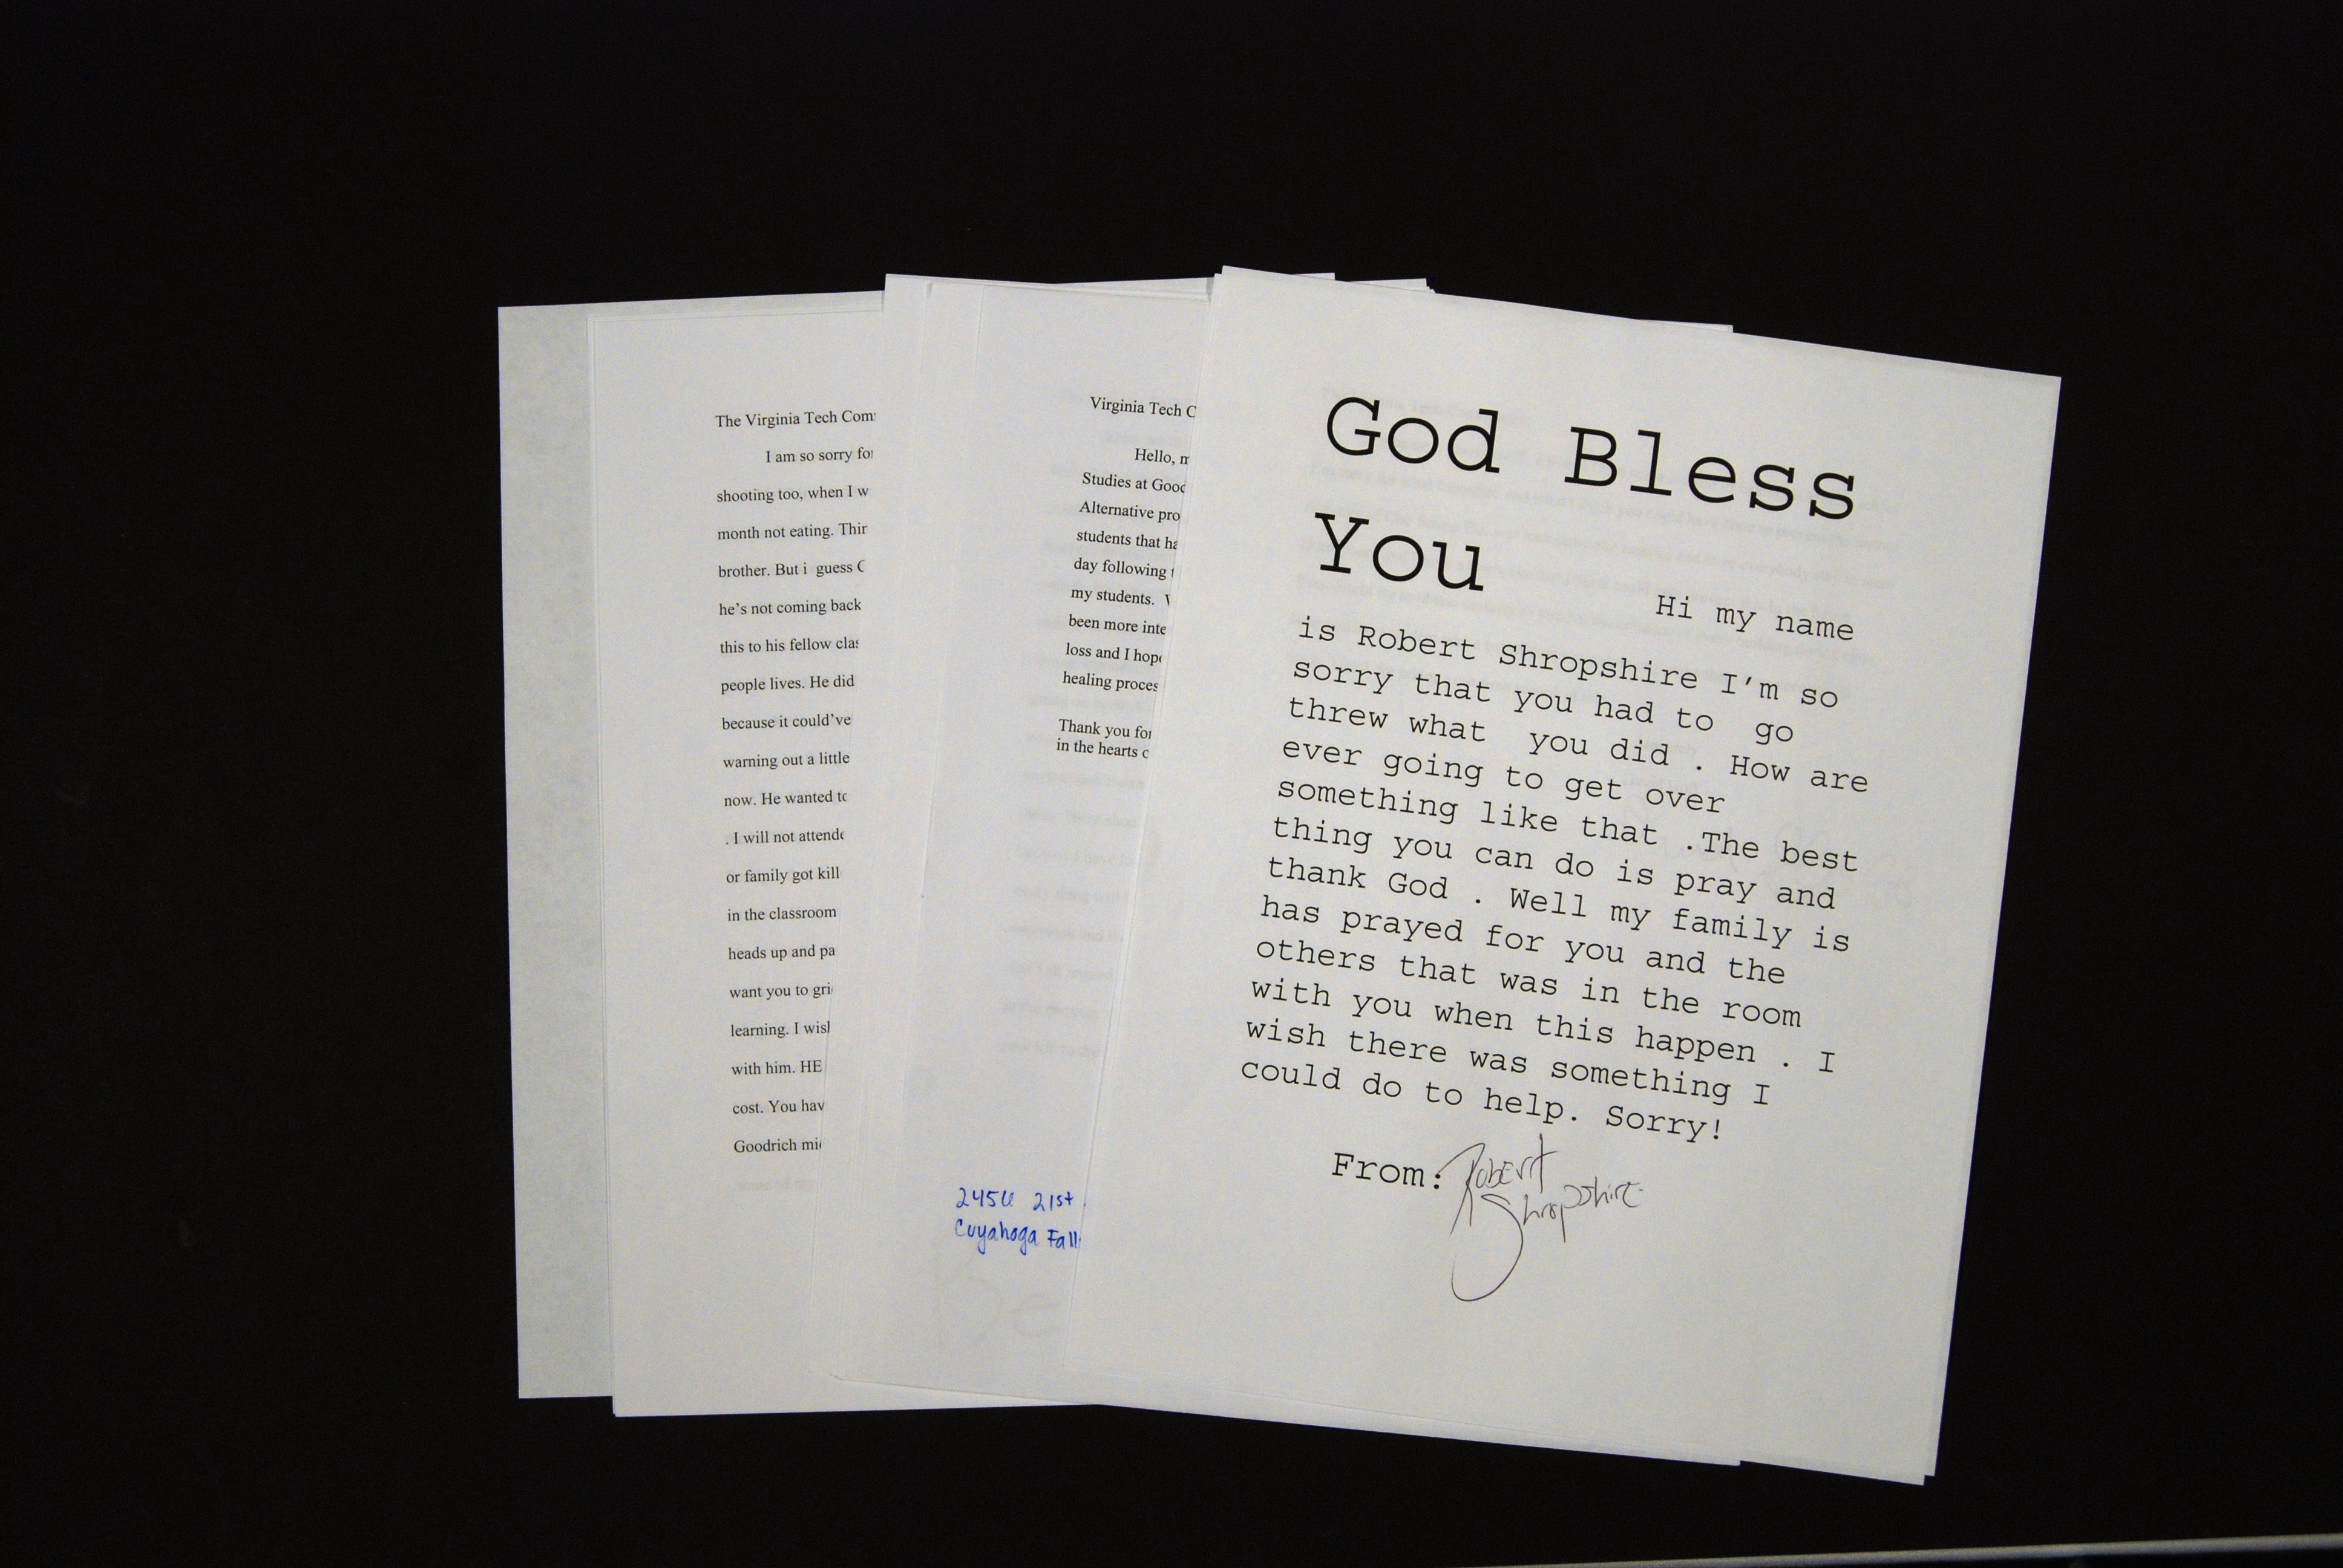 The Virginia Tech Com
I am so sorry for
shooting too, when I w
month not eating. Thin
brother. But i guess
he's not coming back
this to his fellow clas
people lives. He did
because it could've
warning out a little
now. He wanted to
. I will not attend
or family got kill
in the classroom
heads up and pa
want you to gri
learning. I wish
with him. HE
cost. You hav
Goodrich mi
Virginia Tech C
Hello, m
Studies at Good
Alternative pro
students that ha
day following
my students.
been more inte
loss and I hope
healing proces
Thank you for
in the hearts
2456 21st
Cuyahoga Fall
God Bless
You
Hi my name
is Robert Shropshire I'm so
sorry that you had to go
threw what you did . How are
ever going to get over
something like that .The best
thing you can do is pray and
thank God . Well my family is
has prayed for you and the
others that was in the room
with you when this happen . I
wish there was something I
could do to help. Sorry!
From: Robert
Shropshire